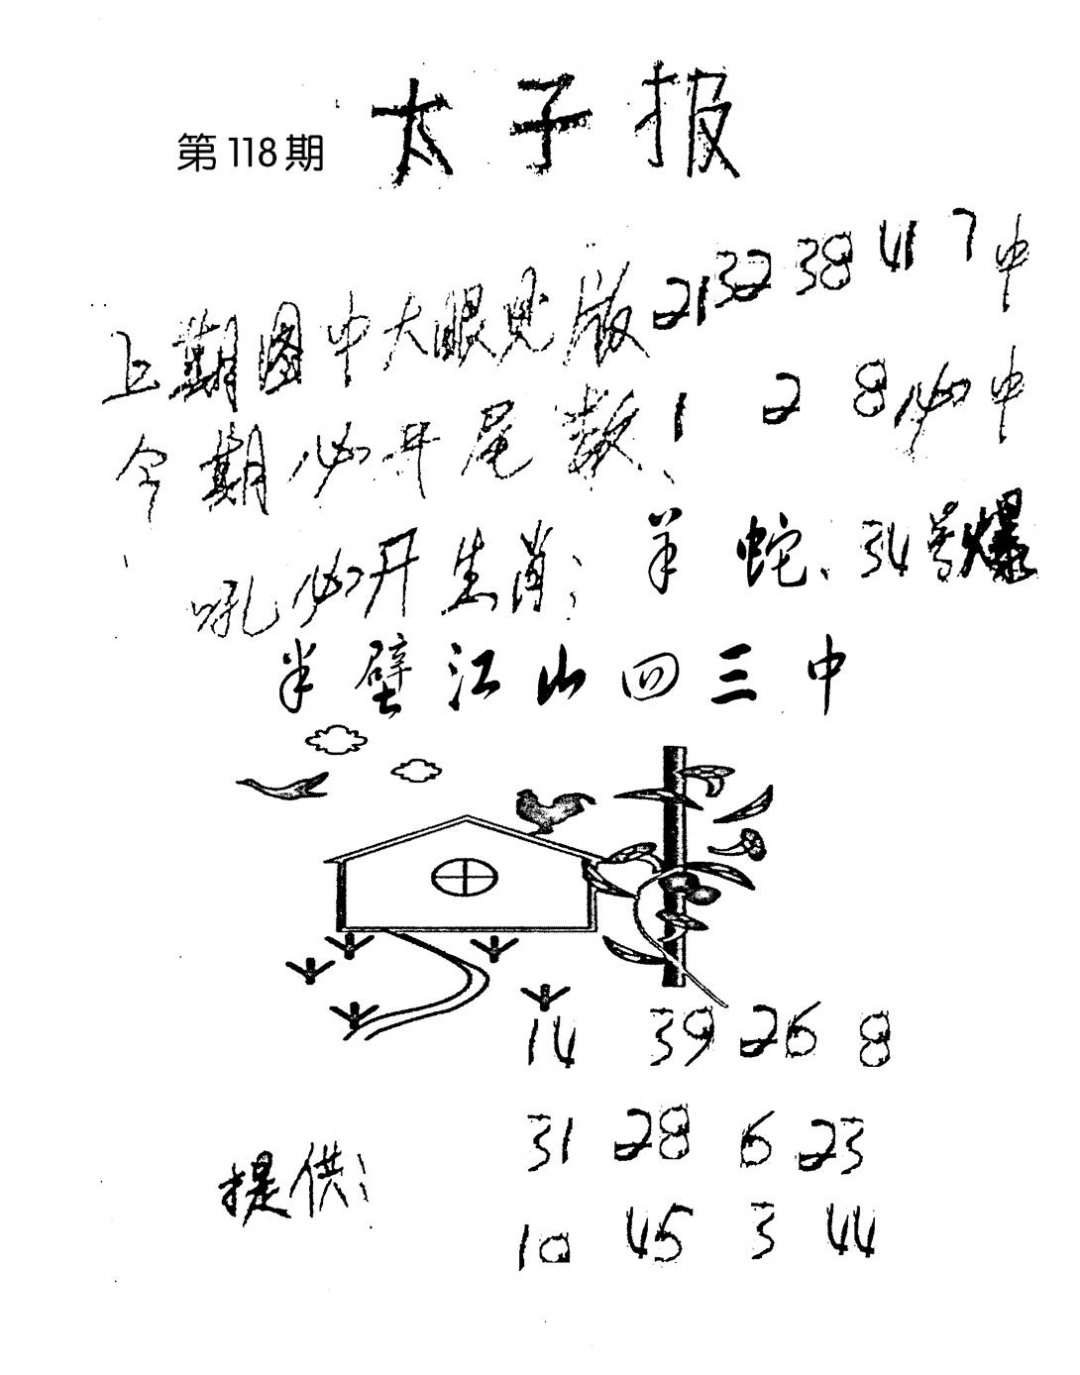 第118期 太子报
上期图中大眼见版 21 32 38 41 7 中
今期必开尾数、1 2 8 必中
吼必开生肖：羊 蛇、34号爆
半壁江山四三中
14 39 26 8
31 28 6 23
提供：
10 45 3 44